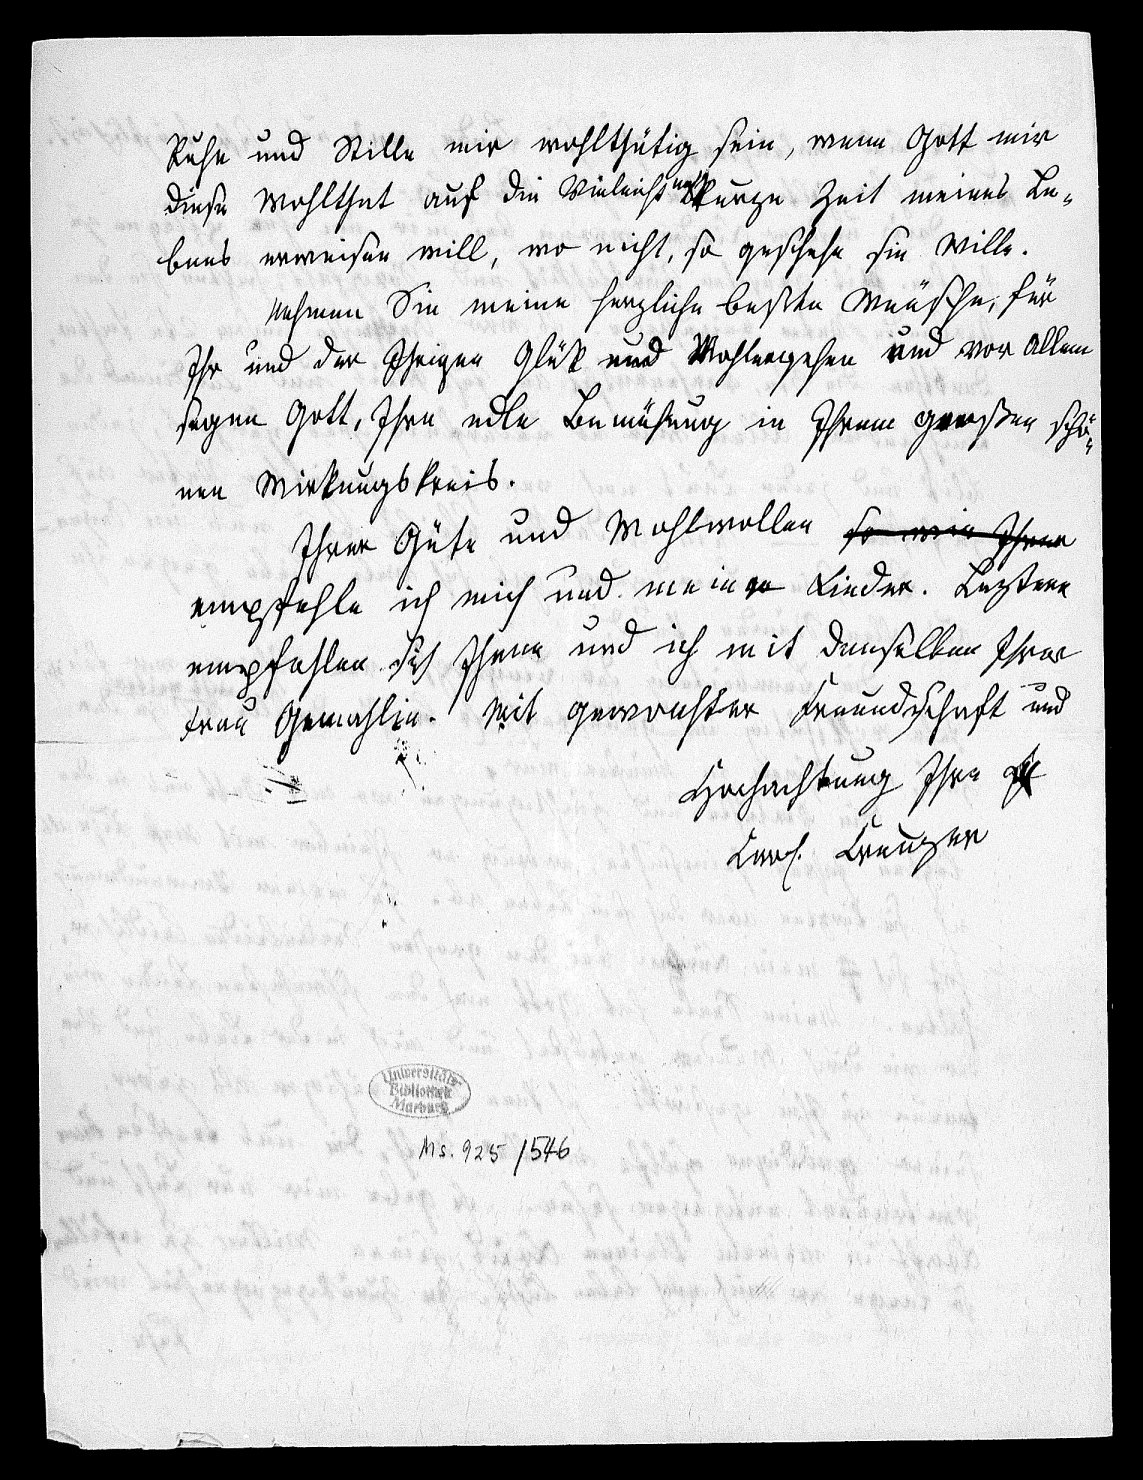 Ruhe und Stille mir wohlthätig sein, wenn Gott mir
diese Wohlthat auf die Vieleicht noch kurze Zeit meines Le-
bens erweisen will, wo nicht, so geschehe sein Wille.
Nehmen Sie meine herzliche besten Wünsche, für
Ihr und der Ihrigen Glük und Wohlergehen und vor allem
segen Gott, Ihre edle Bemühung in Ihrem grossen schö-
nen Wirkungskreis.
Ihrer Güte und Wohlwollen so wie Ihrer
empfehle ich mich und meine Kinder. Leztere
empfehlen sich Ihnen und ich mit denselben Ihrer
Frau Gemahlin. Mit gewohnter Freundschaft und
Hochachtung Ihre
Carol. Creuzer
Universitäts-
Bibliothek
Marburg
Ms. 925/546